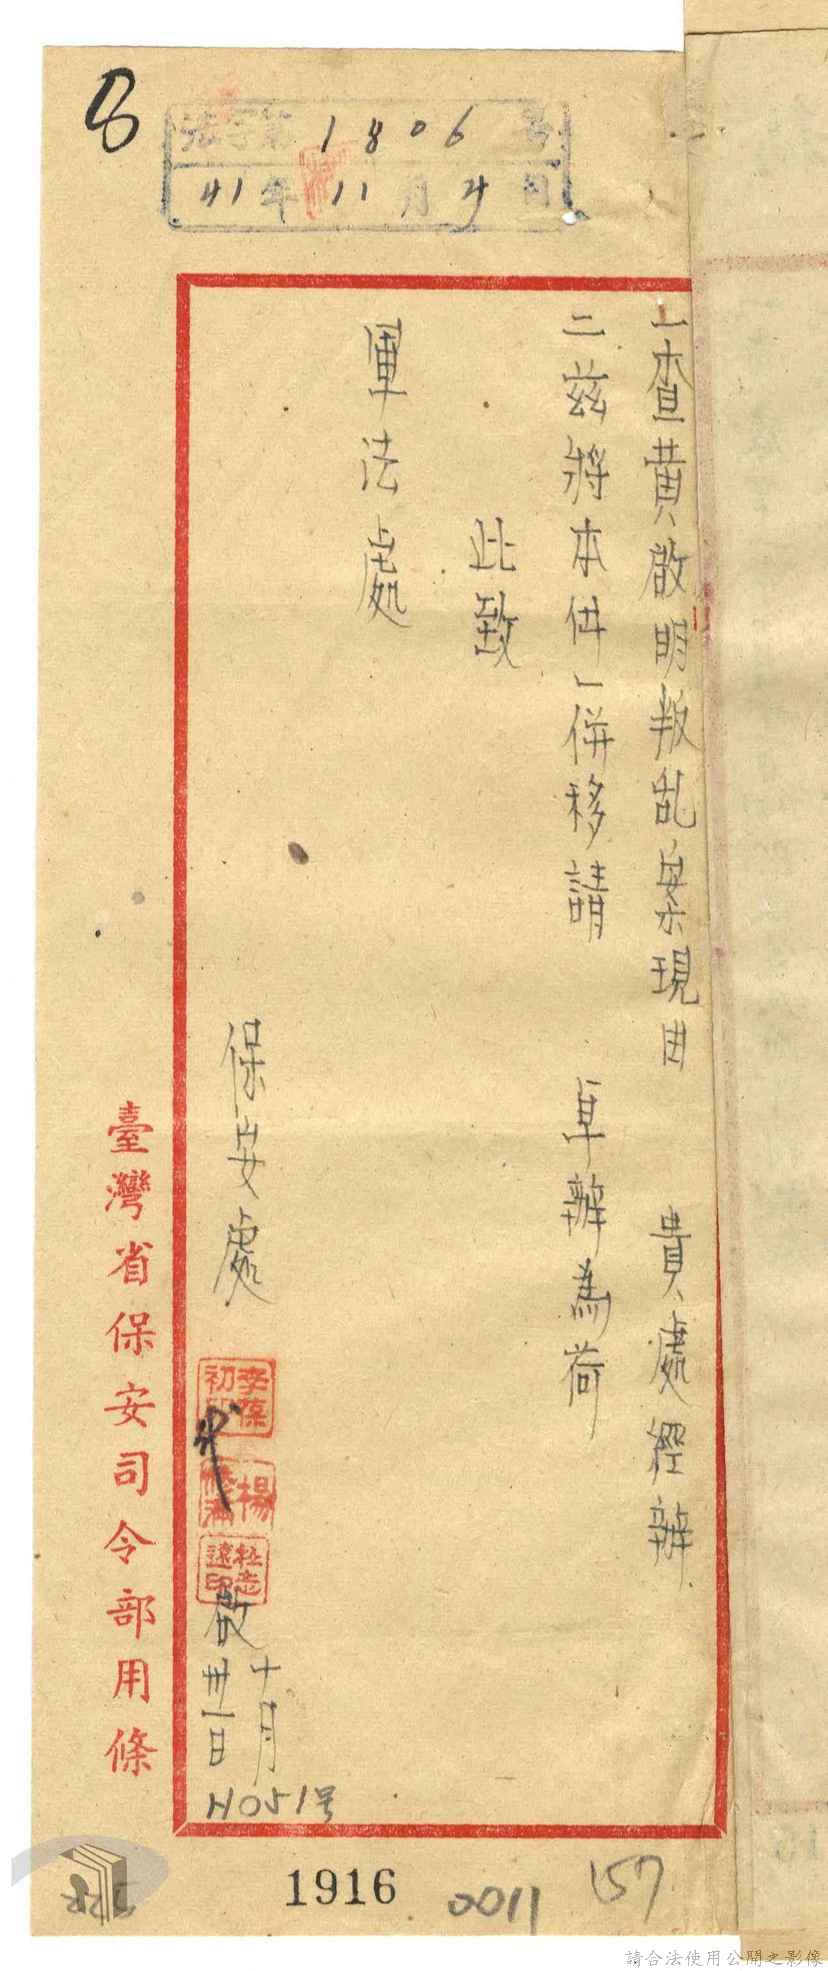 8
法字第1806号
41年11月4日
一查黃啟明叛乱案現由　貴處經辦
二茲將本件一併移請　卓辦為荷
此致
軍法處
保安處
代
楊
杜志遠印
啟
十月
卅一日
H051号
臺灣省保安司令部用條
1916
0011
157
請合法使用公開之影像